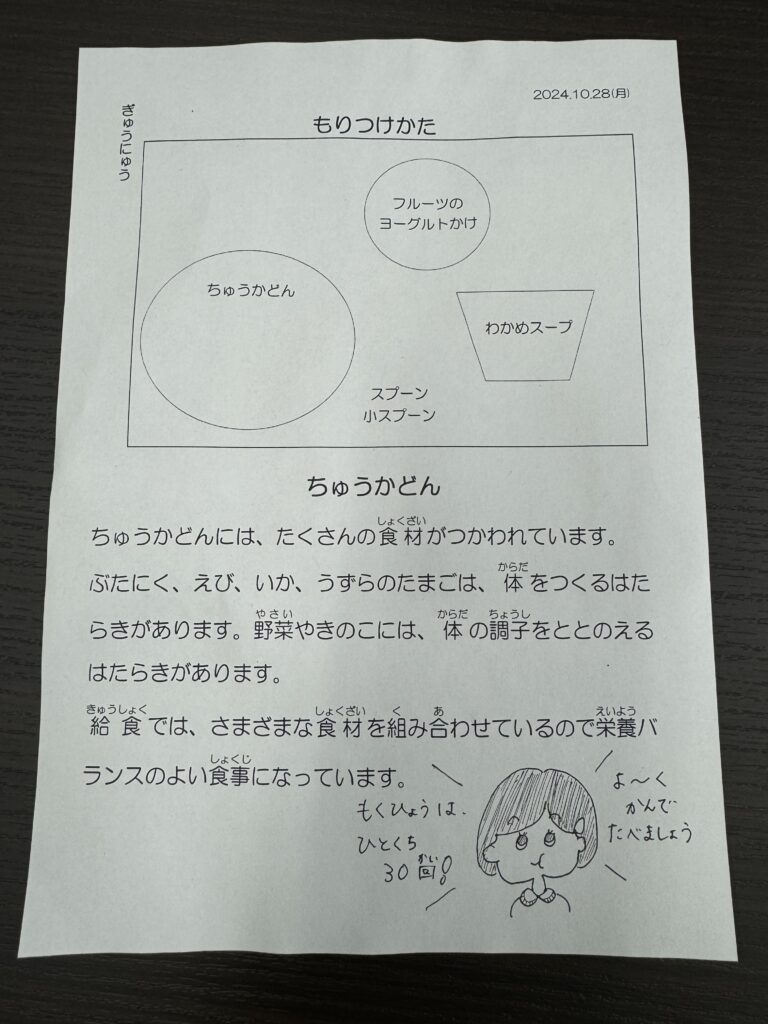 2024.10.28(月)
ぎゅうにゅう
もりつけかた
フルーツの
ヨーグルトかけ
ちゅうかどん
わかめスープ
スプーン
小スプーン
ちゅうかどん
しょくざい
ちゅうかどんには、たくさんの食材がつかわれています。
からだ
ぶたにく、えび、いか、うずらのたまごは、体をつくるはた
やさい からだ ちょうし
らきがあります。野菜やきのこには、体の調子をととのえる
はたらきがあります。
きゅうしょく しょくざい く あ えいよう
給食では、さまざまな食材を組み合わせているので栄養バ
しょくじ
ランスのよい食事になっています。
もくひょうは、
ひとくち
かい
30回!
よ〜く
かんで
たべましょう